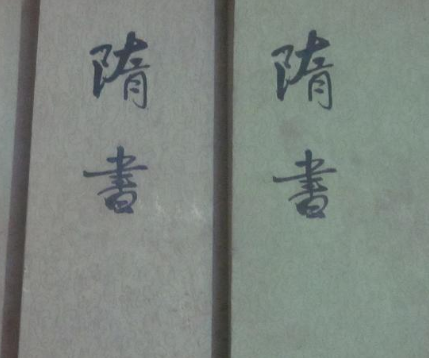 隋書
隋書